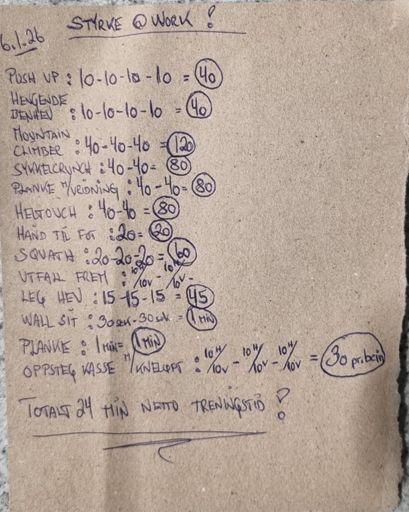 STYRKE @ WORK !
6.1.26
PUSH UP : 10-10-10-10 = 40
HENGENDE
BENHEV : 10-10-10-10 = 40
MOUNTAIN
CLIMBER : 40-40-40 = 120
SYKKELCRUNCH : 40-40= 80
PLANKE M/VRIDNING : 40-40= 80
HELTOUCH : 40-40 = 80
HAND TIL FOT : 20= 20
SQUATH : 20-20-20= 60
UTFALL FREM : 10H/10V - 10H/10V -
LEG HEV : 15-15-15 = 45
WALL SIT : 30sek-30sek = 1 MIN
PLANKE : 1 MIN= 1 MIN
OPPSTEG KASSE M/KNELØFT : 10H/10V - 10H/10V - 10H/10V = 30 pr.bein
TOTALT 24 MIN NETTO TRENINGSTID !